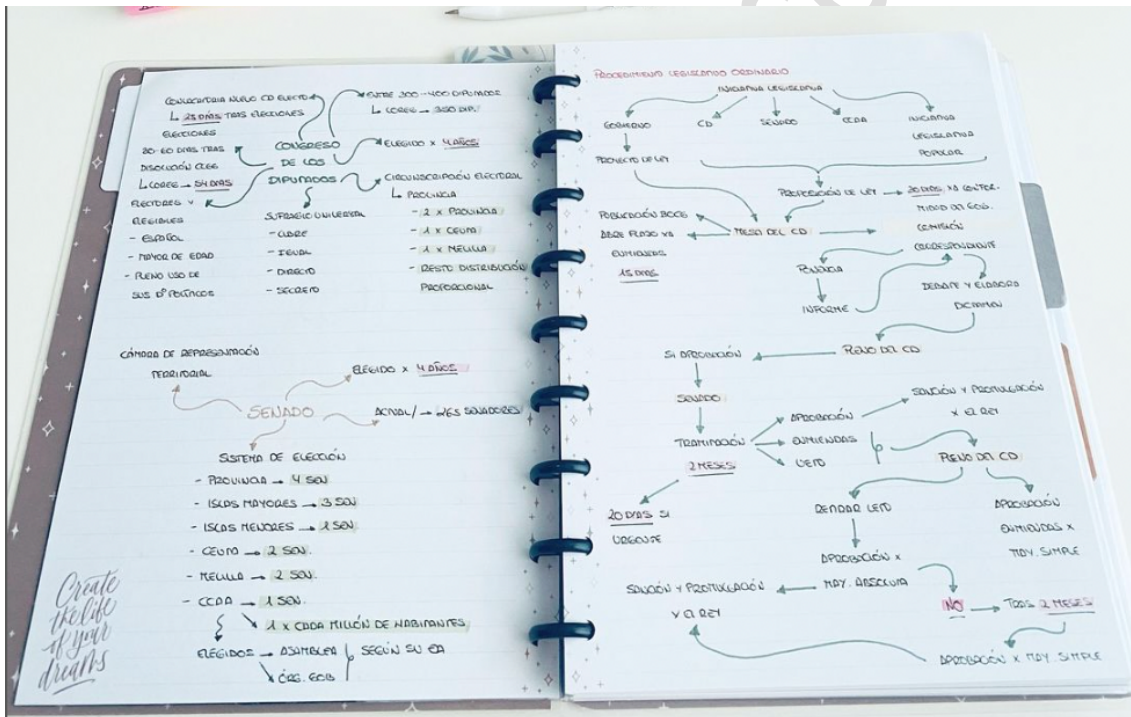 CONVOCATORIA NUEVO CD ELECTO
↳ 25 DÍAS TRAS ELECCIONES
ELECCIONES
30-60 DÍAS TRAS
DISOLUCIÓN CCGG
↳ LOREG → 54 DÍAS
ELECTORES Y
ELEGIBLES
- ESPAÑOL
- MAYOR DE EDAD
- PLENO USO DE
SUS Dº POLÍTICOS
CONGRESO
DE LOS
DIPUTADOS
SUFRAGIO UNIVERSAL
- LIBRE
- IGUAL
- DIRECTO
- SECRETO
ENTRE 300-400 DIPUTADOS
↳ LOREG → 350 DIP.
ELEGIDO x 4 AÑOS
CIRCUNSCRIPCIÓN ELECTORAL
↳ PROVINCIA
- 2 x PROVINCIA
- 1 x CEUTA
- 1 x MELILLA
- RESTO DISTRIBUCIÓN
PROPORCIONAL
CÁMARA DE REPRESENTACIÓN
TERRITORIAL
ELEGIDO x 4 AÑOS
SENADO
ACTUAL/ → 265 SENADORES
SISTEMA DE ELECCIÓN
- PROVINCIA → 4 SEN
- ISLAS MAYORES → 3 SEN
- ISLAS MENORES → 1 SEN
- CEUTA → 2 SEN.
- MELILLA → 2 SEN.
- CCAA → 1 SEN.
1 x CADA MILLÓN DE HABITANTES
ELEGIDOS → ASAMBLEA
ÓRG. GOB
SEGÚN SU EA
Create
the life
of your
dreams
PROCEDIMIENTO LEGISLATIVO ORDINARIO
INICIATIVA LEGISLATIVA
GOBIERNO
CD
SENADO
CCAA
INICIATIVA
LEGISLATIVA
POPULAR
PROYECTO DE LEY
PROPOSICIÓN DE LEY → 30 DÍAS XA CONFOR.
MIDAD DEL GOB.
PUBLICACIÓN BOCG
ABRE PLAZO XA
ENMIENDAS
15 DÍAS
MESA DEL CD
COMISIÓN
CORRESPONDIENTE
PONENCIA
INFORME
DEBATE Y ELABORA
DICTAMEN
PLENO DEL CD
SI APROBACIÓN
SENADO
TRAMITACIÓN
2 MESES
20 DÍAS SI
URGENTE
APROBACIÓN
ENMIENDAS
VETO
SANCIÓN Y PROMULGACIÓN
x EL REY
PLENO DEL CD
DENDAR VETO
APROBACIÓN
ENMIENDAS x
MAY. SIMPLE
APROBACIÓN x
MAY. ABSOLUTA
SANCIÓN Y PROMULGACIÓN
x EL REY
NO → TRAS 2 MESES
APROBACIÓN x MAY. SIMPLE